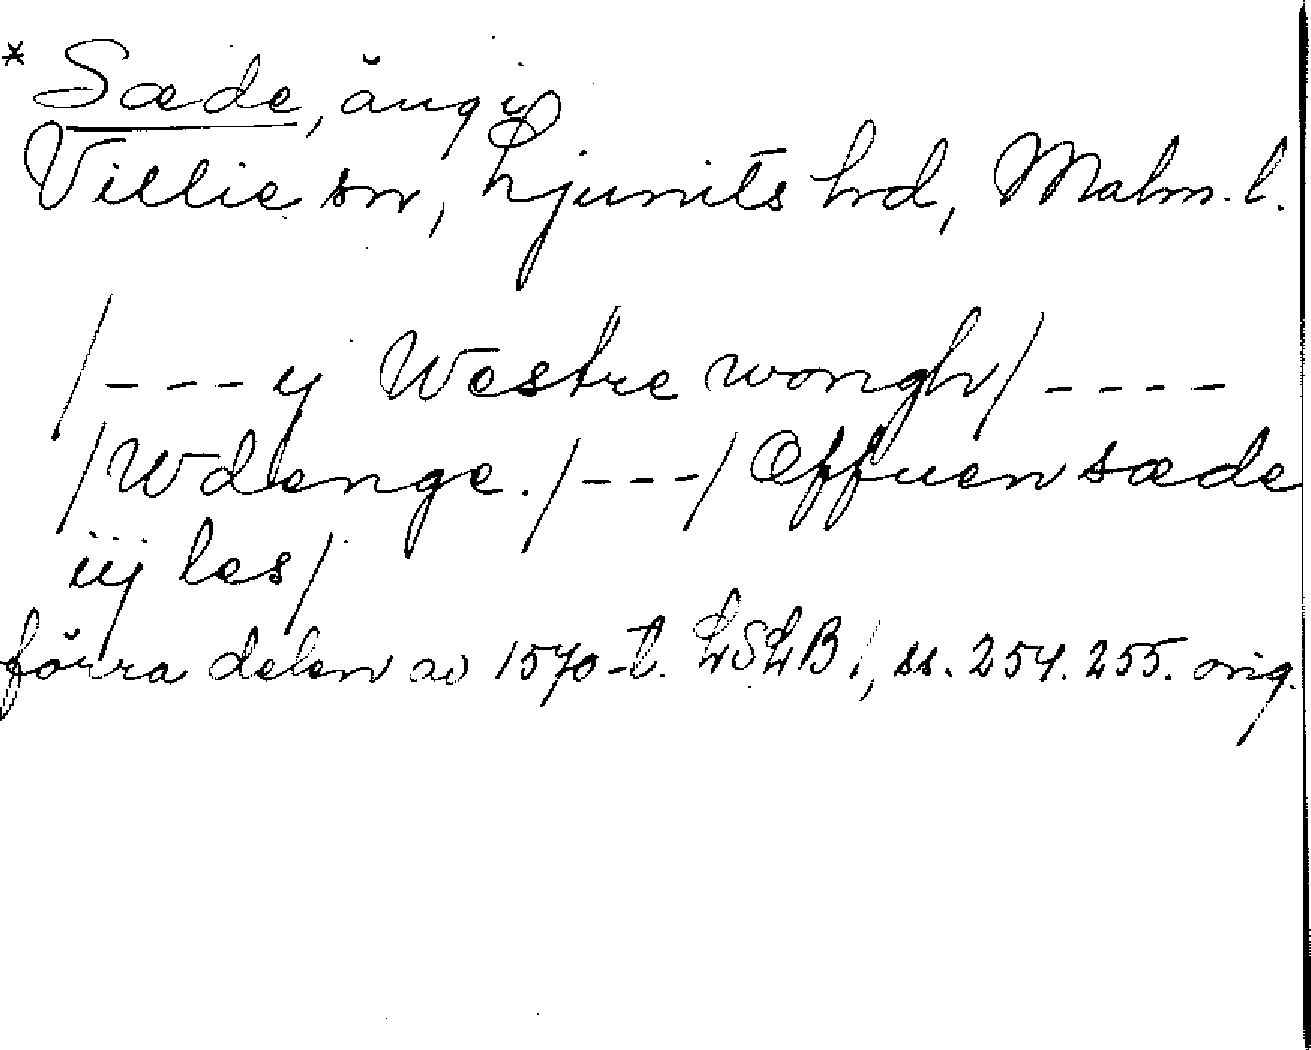 * Sæde, äng i
Villie sn, Ljunits hrd, Malm. l.
/---y Westre wongh/----
/Wdenge./---/Offuen sæde
iij les/
förra delen av 1570-t. LSLB 1, ss. 254. 255. orig.